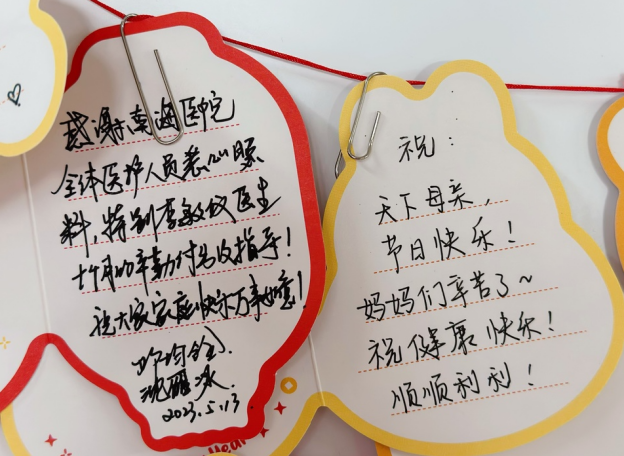 感谢南海医院
全体医护人员悉心照
料,特别李敏仪医生
十个月的辛勤付出及指导!
祝大家家庭快乐万事如意!
2023.5.13
祝:
天下母亲,
节日快乐!
妈妈们辛苦了~
祝健康快乐!
顺顺利利!